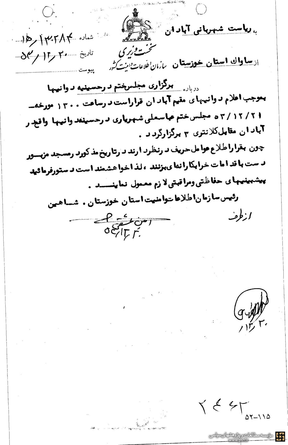 به ریاست شهربانی آبادان
از ساواک استان خوزستان
نخست وزیری
سازمان اطلاعات و امنیت کشور
شماره ۱۳۲۸۴ / ۱۵ﻫ
تاریخ ۵۳/۱۲/۲۰
پیوست
درباره برگزاری مجلس ختم در حسینیه دوانیها
بموجب اعلام دوانیهای مقیم آبادان قرار است در ساعت ۱۳۰۰ مورخه
۵۳/۱۲/۲۱ مجلس ختم عباسعلی شهریاری در حسینیه دوانیها واقع در
آبادان مقابل کلانتری ۳ برگزار گردد.
چون بقرار اطلاع عوامل حریف در نظر دارند در تاریخ مذکور در مسجد مزبور
دست باقدامات خرابکارانه‌ای بزنند، لذا خواهشمند است دستور فرمائید
پیشبینیهای حفاظتی و مراقبتی لازم معمول نمایند.
رئیس سازمان اطلاعات و امنیت استان خوزستان. شاهین
از طرف
۵۳/۱۲/۲۰
۱۲/۲۰
۲۴۶۲
۵۲-۱۱۵